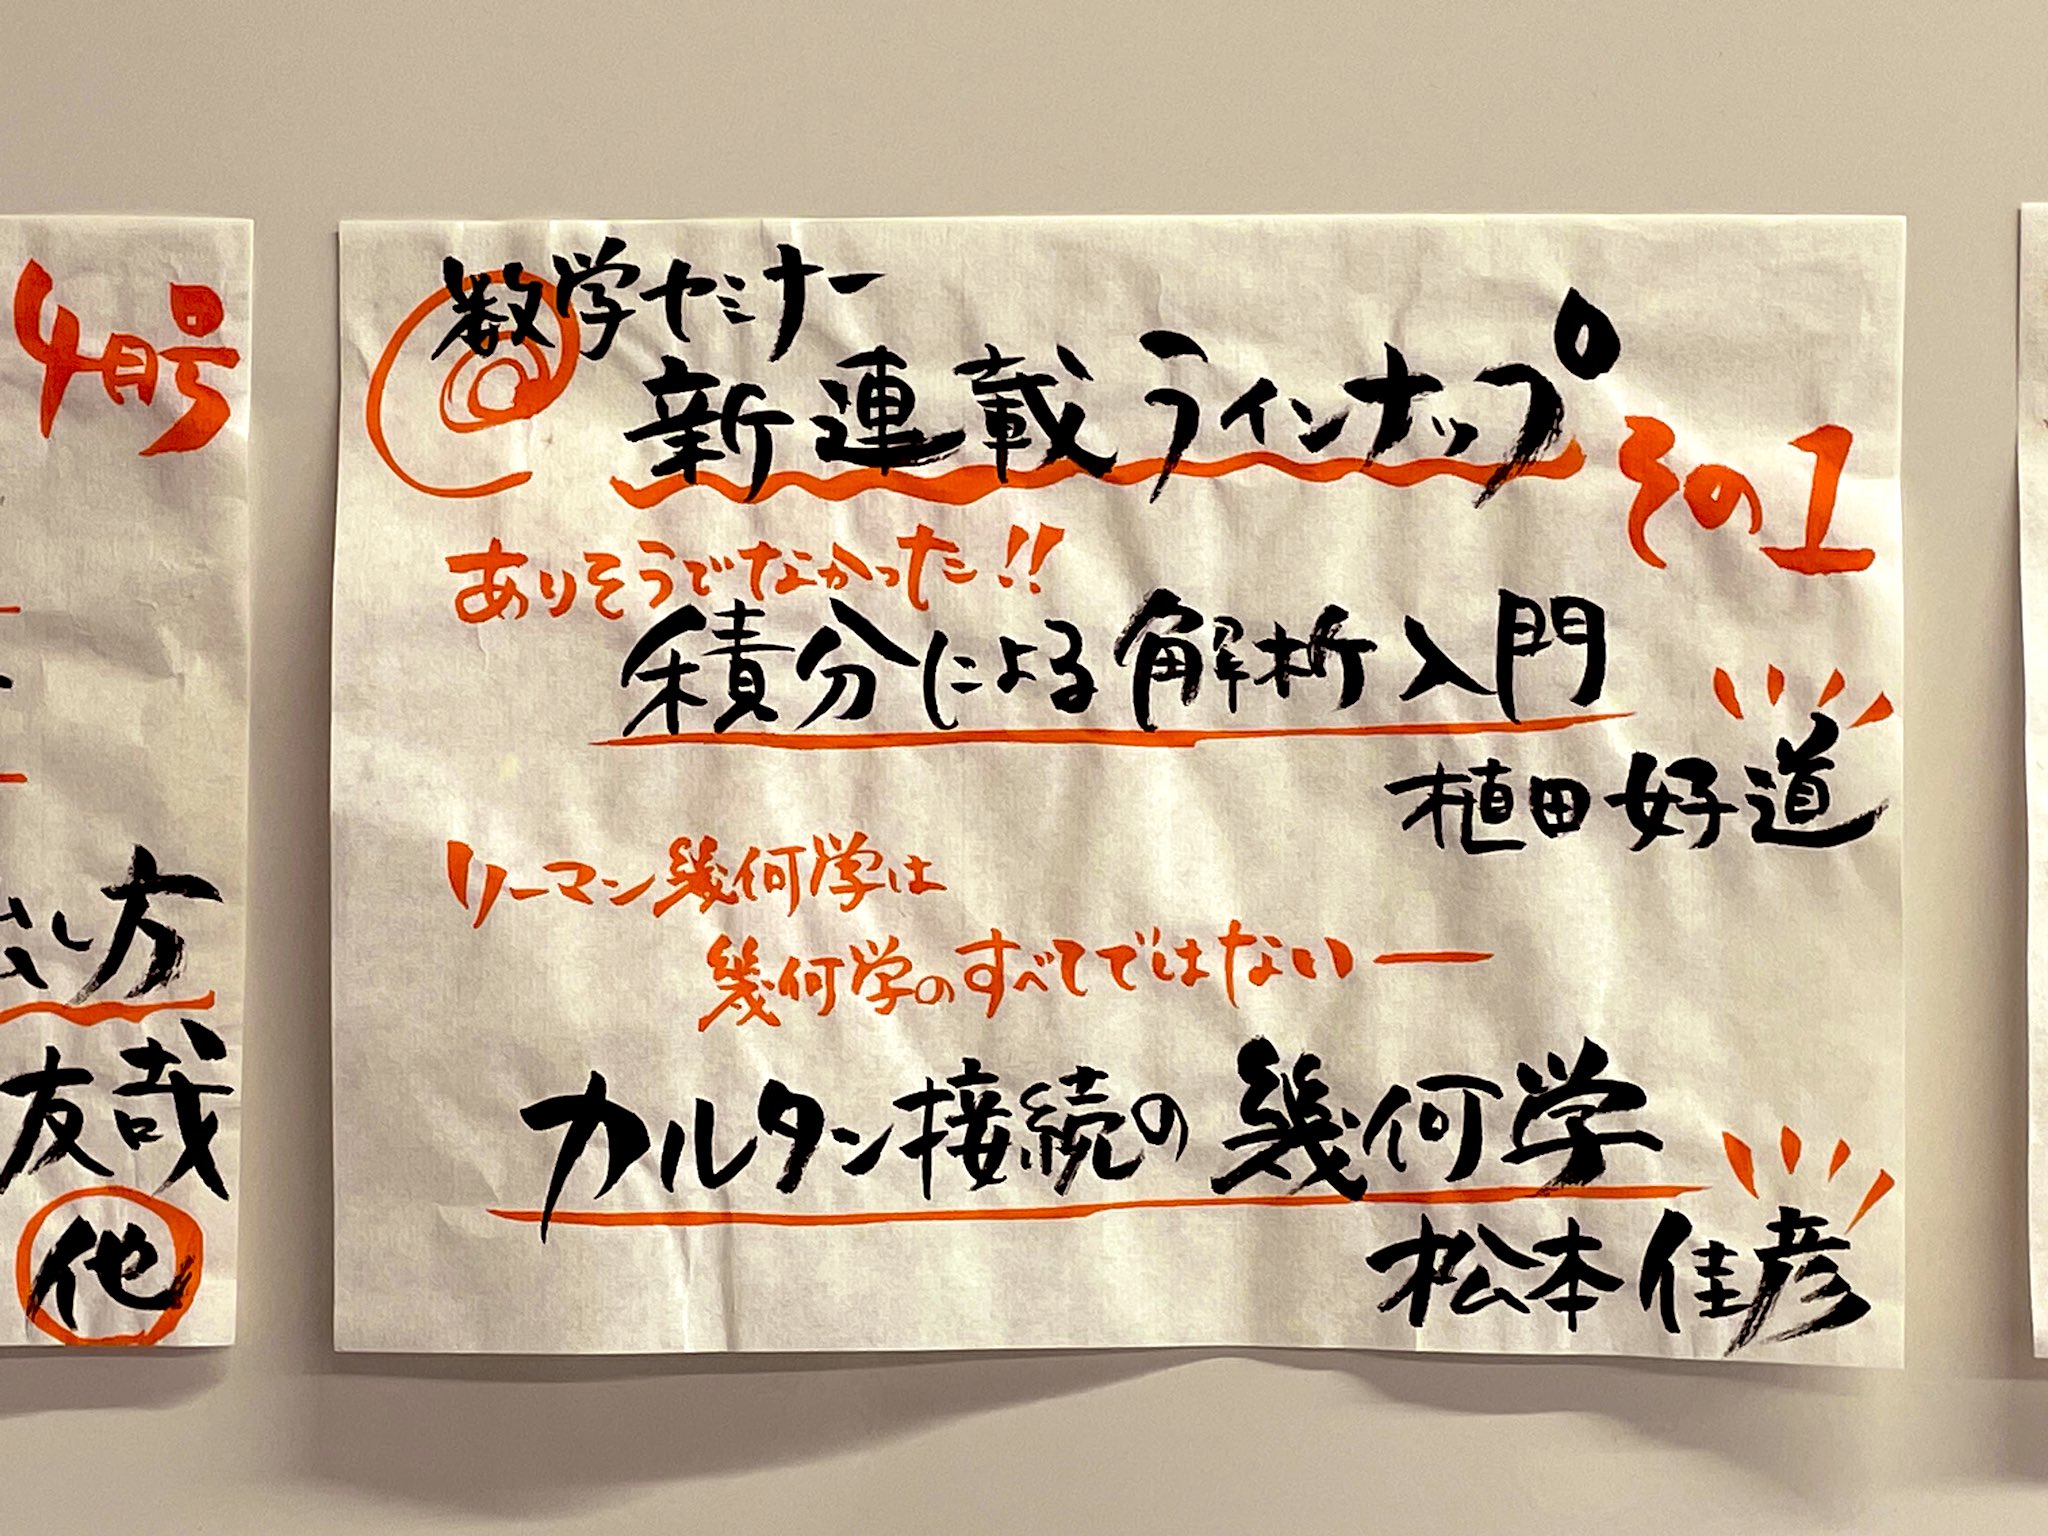 4月号
方
友哉
他
数学セミナー
新連載ラインナップ
その1
ありそうでなかった!!
積分による解析入門
植田好道
リーマン幾何学は
幾何学のすべてではない―
カルタン接続の幾何学
松本佳彦